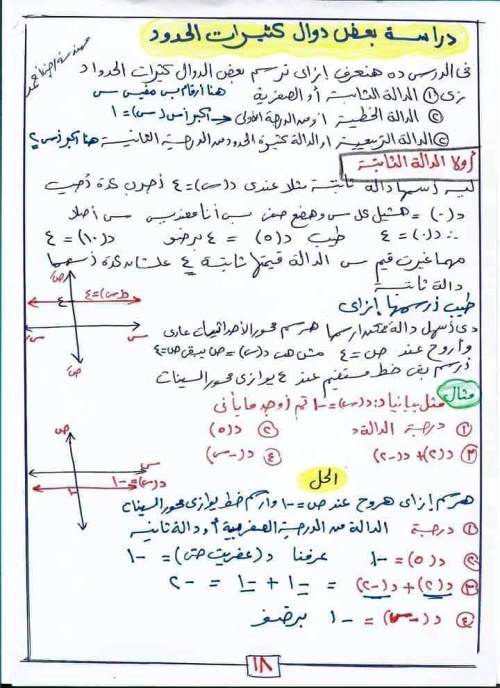 دراسة بعض دوال كثيرات الحدود
فى الدرس ده هنعرف إزاى نرسم بعض الدوال كثيرات الحدود
زى ① الدالة الثابتة أو الصفرية هنا أرقام بس مفيش س
② الدالة الخطية أو من الدرجة الأولى ← أكبر أس لـ س = ١
③ الدالة التربيعية أو الدالة كثيرة الحدود من الدرجة الثانية هنا أكبر أس ٢
أولا الدالة الثابتة
ليه إسمها دالة ثابتة مثلا عندى د(س) = ٤ أجرب كدة أجيب
د(٠) = هشيل كل س وهضع صفر بس أنا معنديش س أصلا
∴ د(٠) = ٤ طيب د(٥) = ٤ برضو د(١٠) = ٤
مهما غيرت قيم س الدالة قيمتها ثابتة ٤ علشان كدة إسمها
دالة ثابتة
طيب نرسمها إزاى
دى أسهل دالة ممكن ارسمها هرسم محور الإحداثيات عادى
وأروح عند ص = ٤ مش هى د(س) = ص يبقى ص = ٤
أرسم بقى خط مستقيم عند ٤ يوازى محور السينات
ص
٤
د(س) = ٤
س
سَ
صَ
مثال
مثل بيانيا د: د(س) = -١ ثم أوجد ما يأتى
① درجة الدالة د ② د(٥)
③ د(٢) + د(-٢) ④ د(-س)
ص
س
-١
د(س) = -١
الحل
هرسم إزاى هروح عند ص = -١ وارسم خط يوازى محور السينات
① درجة الدالة من الدرجة الصفرية أو دالة ثابته
② د(٥) = -١ عرفنا د(عفريت حتى) = -١
③ د(٢) + د(-٢) = -١ + -١ = -٢
④ د(-س) = -١ برضو
١٨